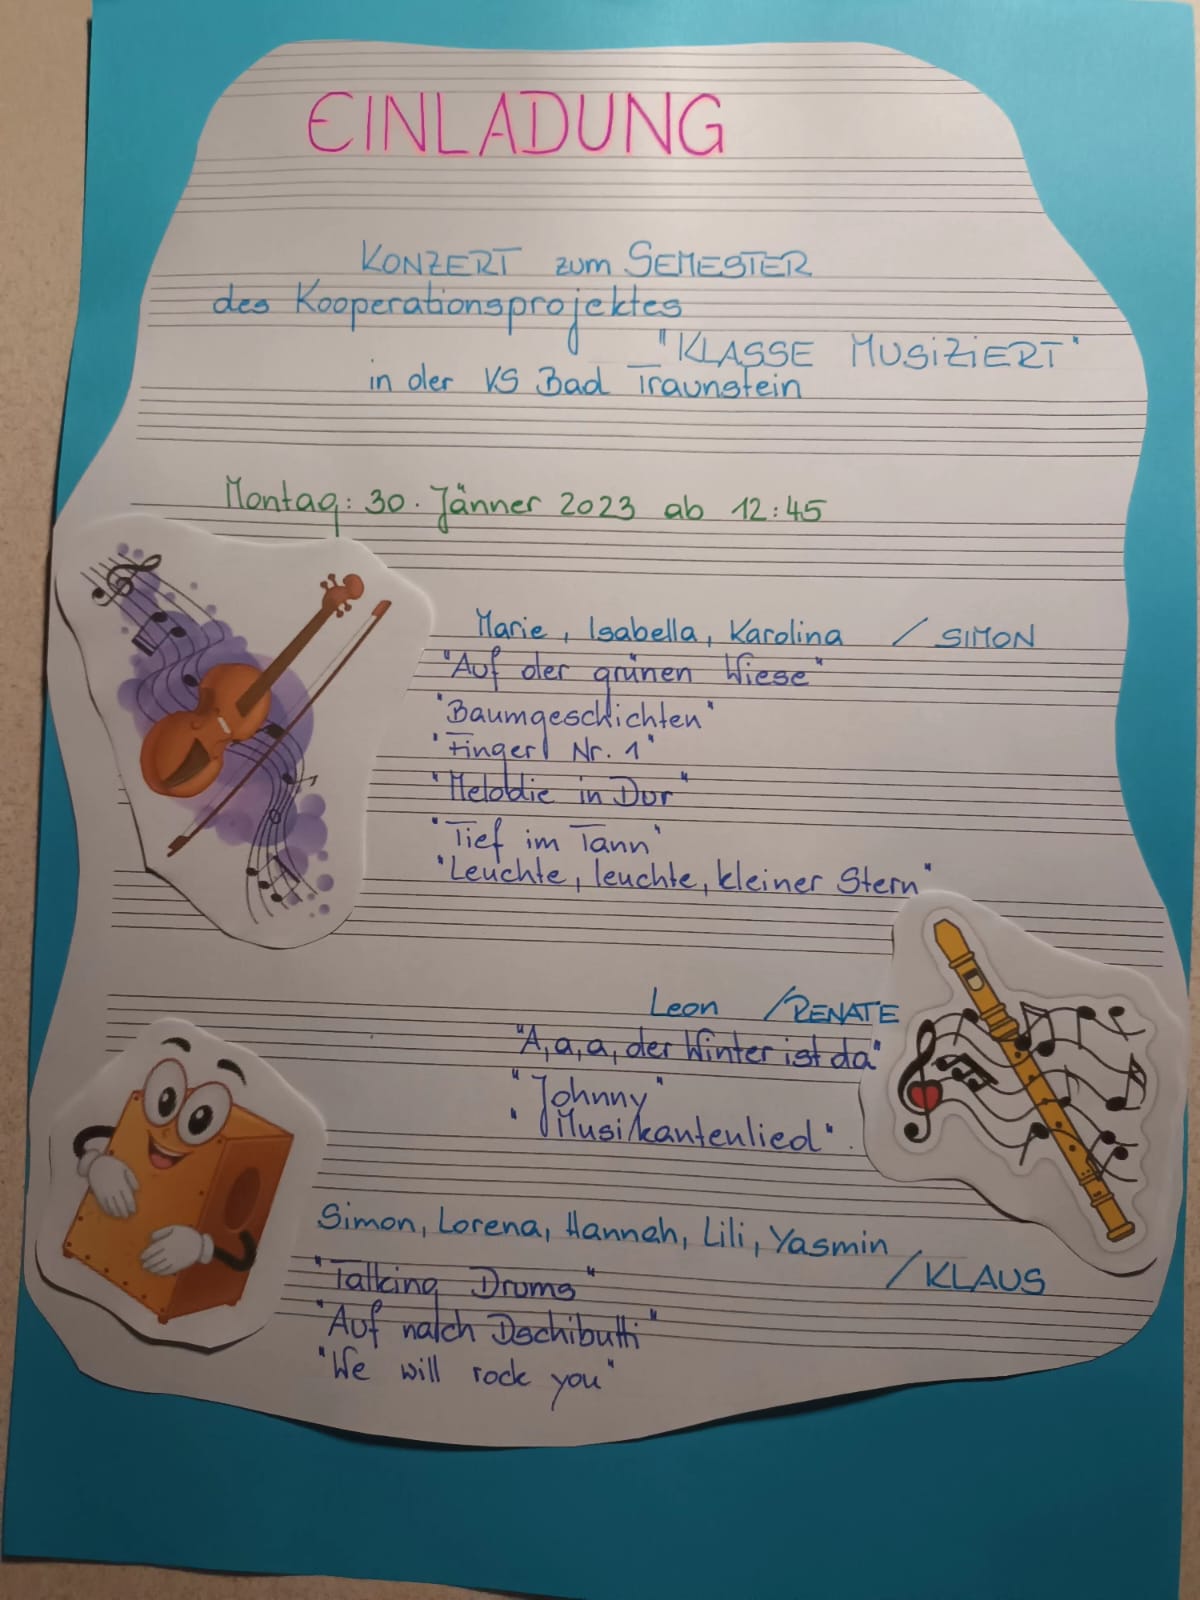 EINLADUNG
KONZERT zum SEMESTER
des Kooperationsprojektes
"KLASSE MUSIZIERT"
in der VS Bad Traunstein
Montag: 30. Jänner 2023 ab 12:45
Marie, Isabella, Karolina / SIMON
"Auf der grünen Wiese"
"Baumgeschichten"
"Fingerl Nr. 1"
"Melodie in Dur"
"Tief im Tann"
"Leuchte, leuchte, kleiner Stern"
Leon /RENATE
"A, a, a, der Winter ist da"
"Johnny"
"Musikantenlied".
Simon, Lorena, Hannah, Lili, Yasmin
/ KLAUS
"Talking Drums"
"Auf nach Dschibutti"
"We will rock you"